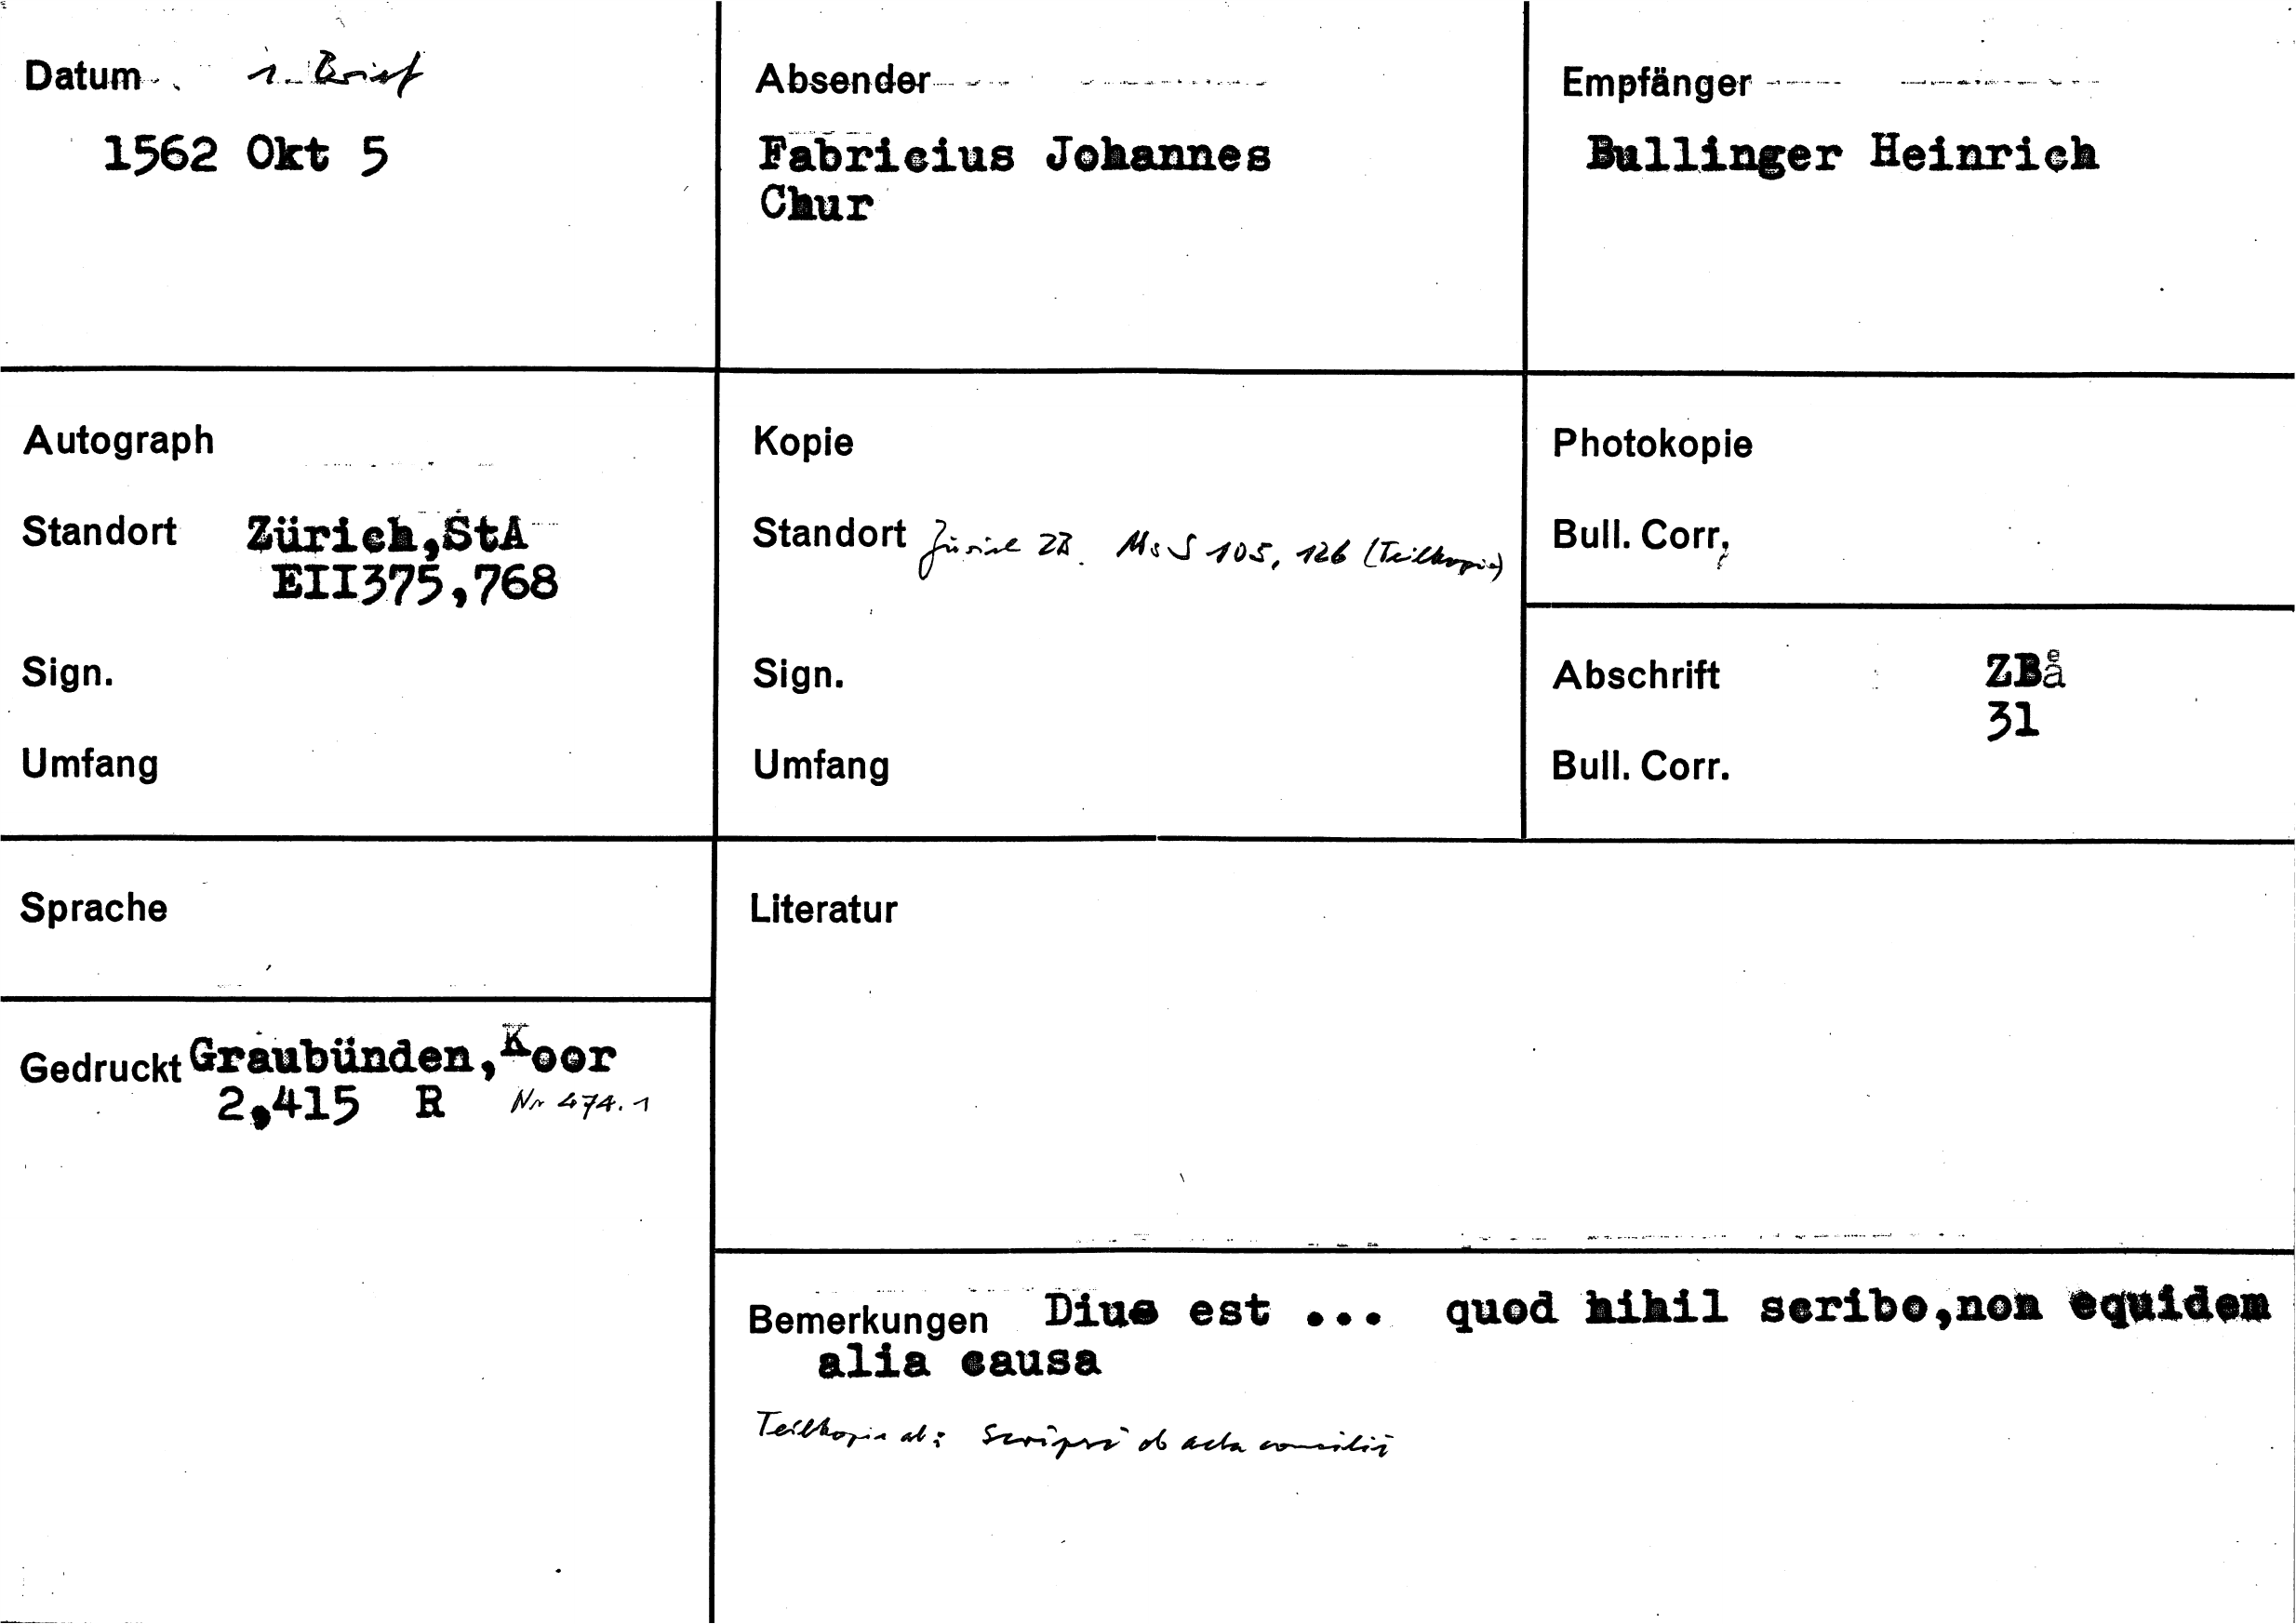 Datum 1. Brief
1562 Okt 5
Absender
Fabricius Johannes
Chur
Empfänger
Bullinger Heinrich
Autograph
Standort Zürich,StA
EII375,768
Sign.
Umfang
Kopie
Standort Zürich ZB. Ms S 105, 126 (Teilkopie)
Sign.
Umfang
Photokopie
Bull. Corr.
Abschrift ZB
31
Bull. Corr.
Sprache
Literatur
Gedruckt Graubünden,Koor
2,415 R Nr 474.1
Bemerkungen Dius est ... quod nihil scribo,non equidem
alia causa
Teilkopie ab: Scripsi ob acta concilii